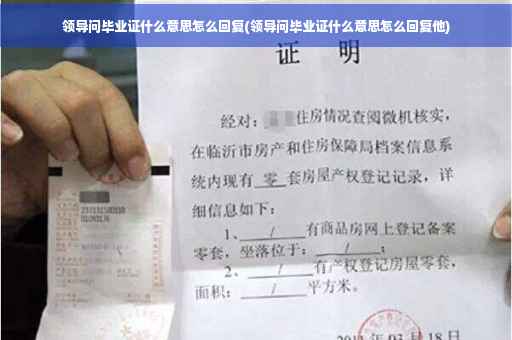 领导问毕业证什么意思怎么回复(领导问毕业证什么意思怎么回复他)
证 明
经对: 住房情况查阅微机核实,
在临沂市房产和住房保障局档案信息系
统内现有 零 套房屋产权登记记录, 详
细信息如下:
1、 / 有商品房网上登记备案
零套, 坐落位于: / ;
2、 / 有产权登记房屋零套,
面积: / 平方米。